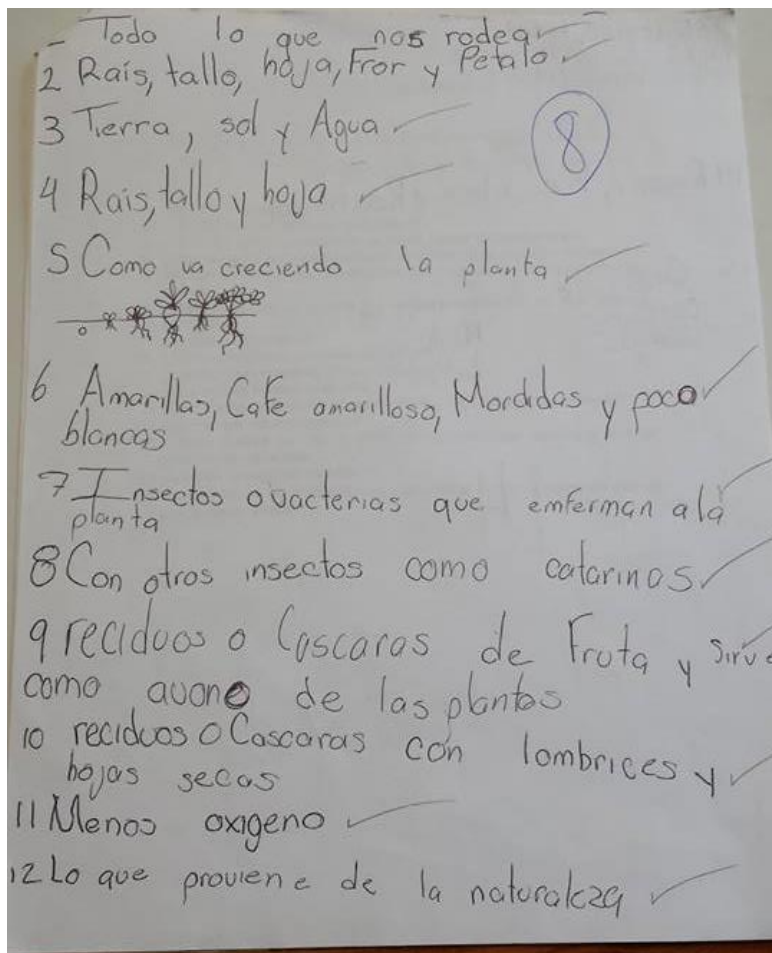 - Todo lo que nos rodea
2 Rais, tallo, hoja, Fror y Petalo
8
3 Tierra, sol y Agua
4 Rais, tallo y hoja
5 Como va creciendo la planta
6 Amarillas, Cafe amarilloso, Mordidas y poco
blancas
7 Insectos o vacterias que emferman a la
planta
8 Con otros insectos como catarinas
9 reciduos o Cascaras de Fruta y sirve
como avono de las plantas
10 reciduos o Cascaras con lombrices y
hojas secas
11 Menos oxigeno
12 Lo que proviene de la naturaleza